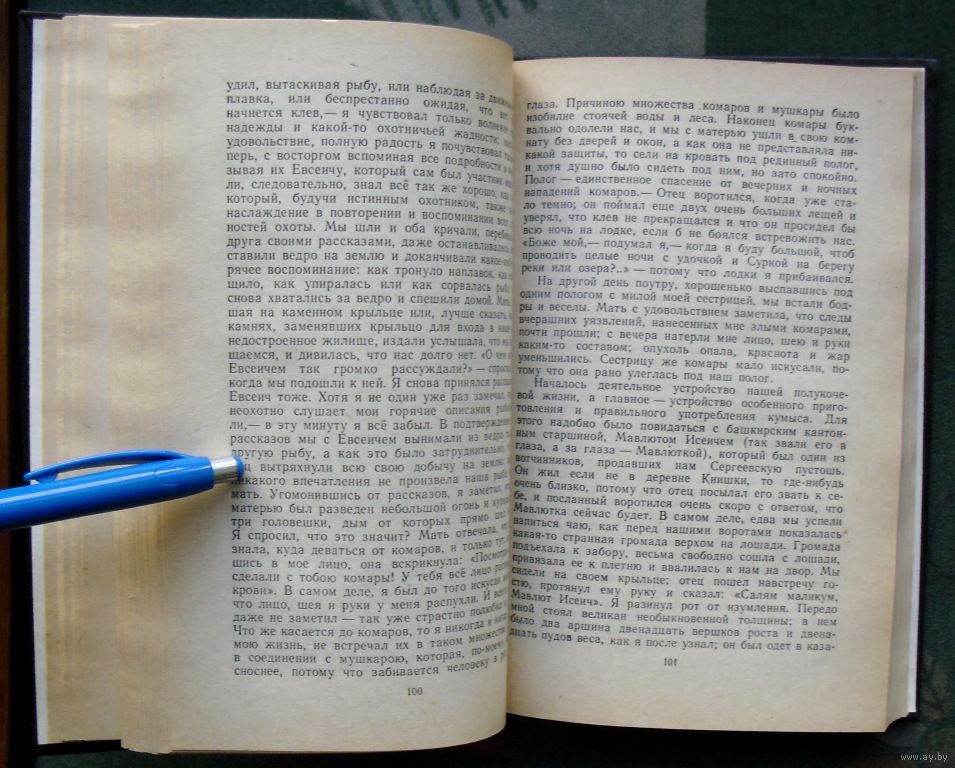 удил, вытаскивая рыбу, или наблюдая за
плавка, или беспрестанно ожидая, что вот
начнется клев,— я чувствовал только волнение
надежды и какой-то охотничьей жадности;
удовольствие, полную радость я почувствовал
перь, с восторгом вспоминая все подробности и
зывая их Евсеичу, который сам был участник
ли, следовательно, знал всё так же хорошо, как
который, будучи истинным охотником, также
наслаждение в повторении и воспоминании всех
ностей охоты. Мы шли и оба кричали,
друга своими рассказами, даже останавливались
ставили ведро на землю и доканчивали
рячее воспоминание: как тронуло наплавок, как
щило, как упиралась или как сорвалась рыба
снова хватались за ведро и спешили домой.
шая на каменном крыльце или, лучше сказать,
камнях, заменявших крыльцо для входа в наше
недостроенное жилище, издали услышала, что
щаемся, и дивилась, что нас долго нет. «О чем
Евсеичем так громко рассуждали?» —
когда мы подошли к ней. Я снова принялся
Евсеич тоже. Хотя я не один уже раз замечал,
неохотно слушает мои горячие описания
ли,— в эту минуту я всё забыл. В подтверждение
рассказов мы с Евсеичем вынимали из ведра
другую рыбу, а как это было затруднительно,
вытряхнули всю свою добычу на землю
никакого впечатления не произвела наша рыба
мать. Угомонившись от рассказов, я заметил,
матерью был разведен небольшой огонь и
три головешки, дым от которых прямо
Я спросил, что это значит? Мать отвечала,
знала, куда деваться от комаров, и только тут,
шись в мое лицо, она вскрикнула:
сделали с тобою комары! У тебя всё лицо
крови». В самом деле, я был до того искусан
что лицо, шея и руки у меня распухли. И всего
даже не заметил — так уже страстно полюбил
Что же касается до комаров, то я никогда и
мою жизнь, не встречал их в таком множестве
в соединении с мушкарою, которая, по-моему,
сноснее, потому что забивается человеку в
100
глаза. Причиною множества комаров и мушкары было
изобилие стоячей воды и леса. Наконец комары бук-
вально одолели нас, и мы с матерью ушли в свою ком-
нату без дверей и окон, а как она не представляла ни-
какой защиты, то сели на кровать под рединный полог,
и хотя душно было сидеть под ним, но зато спокойно.
Полог — единственное спасение от вечерних и ночных
нападений комаров.— Отец воротился, когда уже ста-
ло темно; он поймал еще двух очень больших лещей и
уверял, что клев не прекращался и что он просидел бы
всю ночь на лодке, если б не боялся встревожить нас.
«Боже мой,— подумал я,— когда я буду большой, чтоб
проводить целые ночи с удочкой и Суркой на берегу
реки или озера?..» — потому что лодки я прибаивался.
На другой день поутру, хорошенько выспавшись под
одним пологом с милой моей сестрицей, мы встали бод-
ры и веселы. Мать с удовольствием заметила, что следы
вчерашних уязвлений, нанесенных мне злыми комарами,
почти прошли; с вечера натерли мне лицо, шею и руки
каким-то составом; опухоль опала, краснота и жар
уменьшились. Сестрицу же комары мало искусали, по-
тому что она рано улеглась под наш полог.
Началось деятельное устройство нашей полукоче-
вой жизни, а главное — устройство особенного приго-
товления и правильного употребления кумыса. Для
этого надобно было повидаться с башкирским кантон-
ным старшиной, Мавлютом Исеичем (так звали его в
глаза, а за глаза — Мавлюткой), который был один из
вотчинников, продавших нам Сергеевскую пустошь.
Он жил если не в деревне Киишки, то где-нибудь
очень близко, потому что отец посылал его звать к се-
бе, и посланный воротился очень скоро с ответом, что
Мавлютка сейчас будет. В самом деле, едва мы успели
напиться чаю, как перед нашими воротами показалась
какая-то странная громада верхом на лошади. Громада
подъехала к забору, весьма свободно сошла с лошади,
привязала ее к плетню и ввалилась к нам на двор. Мы
сидели на своем крыльце; отец пошел навстречу го-
стю, протянул ему руку и сказал: «Салям маликум,
Мавлют Исеич». Я разинул рот от изумления. Передо
мной стоял великан необыкновенной толщины; в нем
было два аршина двенадцать вершков роста и двена-
дцать пудов веса, как я после узнал; он был одет в каза-
101
www.ay.by